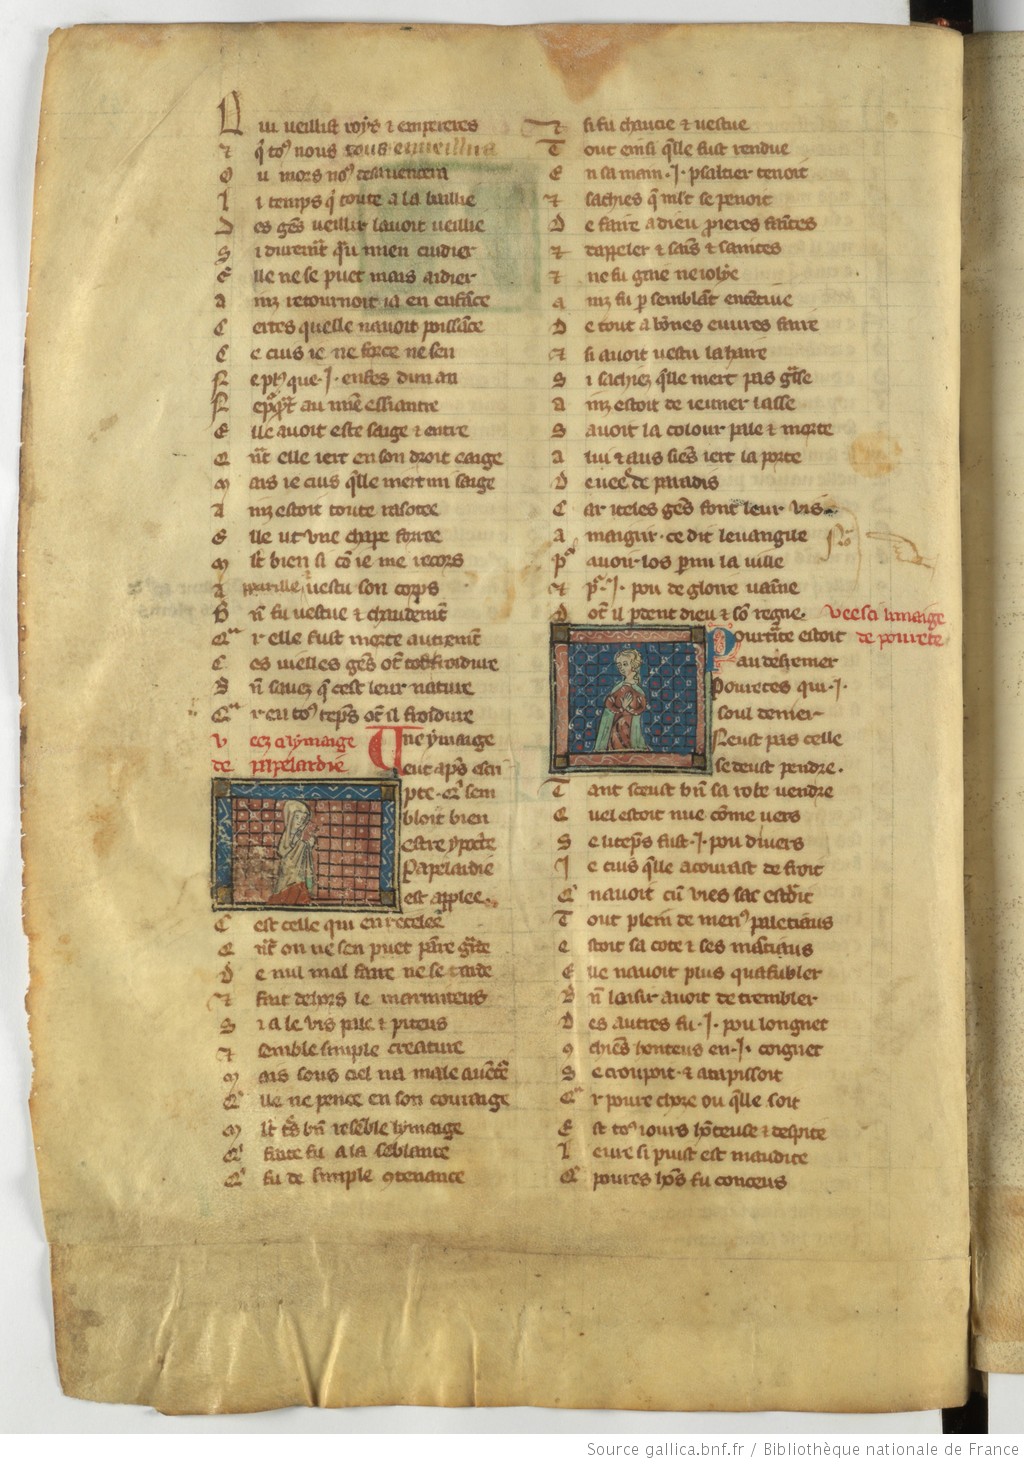 Q ui veillist roys & empereres
& q̃ toꝰ nous tous enveillira
O u mors noꝰ desavencera
L i temps q̃ toute a la baillie
D es gẽs veillir lavoit veillie
S i durem̃t qu mien cuidier
E lle ne se puet mais aidier
A inz retournoit ia en enfãce
C ertes quelle navoit poissãce
C e cius ie ne force ne sen
N e plꝰ que .I. enfes dun an
N e pq̃nt au mien essiantre
E lle avoit este saige & entre
Q ñt elle iert en son droit eaige
M ais ie cius q̃lle niert mi saige
A inz estoit toute rasotee
E lle ut une chape forree
M lt bien si cõ ie me recors
A vestu son corps
B ñ fu vestue & chaudem̃t
Q r elle fust morte autrem̃t
C es vielles gẽs õt tost froidure
B ñ savez q̃ cest leur nature
v eez ci lymaige
de papelardie
U ne ymaige
eut aps̃ escri
pte . q̃ sem
bloit bien
estre ypocrite
Papelardie
est applee.
C est celle qui en recelee
Q ñt on ne sen puet p̃re garde
D e nul mal faire ne se tarde
& fait dehors le marmiteus
S i a le vis pale & piteus
& semble simple creature
M ais sous ciel na male avẽtũre
Q lle ne pence en son couraige
M lt tres bñ resẽble lymaige
Q faite fu a la sẽblance
Q fu de simple ꝯtenance
& si fu chaucie & vestue
T out einsi q̃lle fust rendue
E n sa main .I. psaltier tenoit
& sachies q̃ mlt se penoit
D e faire a dieu prieres faintes
& dappeler & sains & saintes
& ne fu gaie ne iolive
A inz fu p semblãt ententive
D e tout a bõnes euvres faire
& si avoit vestu la haire
S i sachiez q̃lle niert pas grasse
A inz estoit de ieuner lasse
S avoit la colour pale & morte
A lui & aus siens iert la porte
D evee de paradis
C ar iteles gẽs font leur vis
A maigrir . ce dit levangile
Pʳ avoir los parmi la ville
& pʳ .I. pou de gloire vainne
D õt il pdent dieu & sõ regne. Veesci limaige
de povrete
P ourtraite estoit
au desrenier
Povretes qui .I.
soul denier
Neust pas celle
se deust pendre.
T ant sceust bñ sa robe vendre
Q uel estoit nue cõme vers
S e li teps fust .I. pou divers
I e cius q̃lle acourast de froit
Q navoit cũ vies sac estroit
T out plein de menꝰ paletiaus
E stoit sa cote & ses mãtiaus
E lle navoit plus quafubler
B ñ loisir avoit de trembler
D es autres fu .I. pou longnet
ꝯ chiẽs honteus en .I. coignet
S e croupoit & atapissoit
Q r povre chose ou q̃lle soit
E st toꝰ iours hõteuse & despite
L eure si puist est maudite
Q povres hõs fu conceus